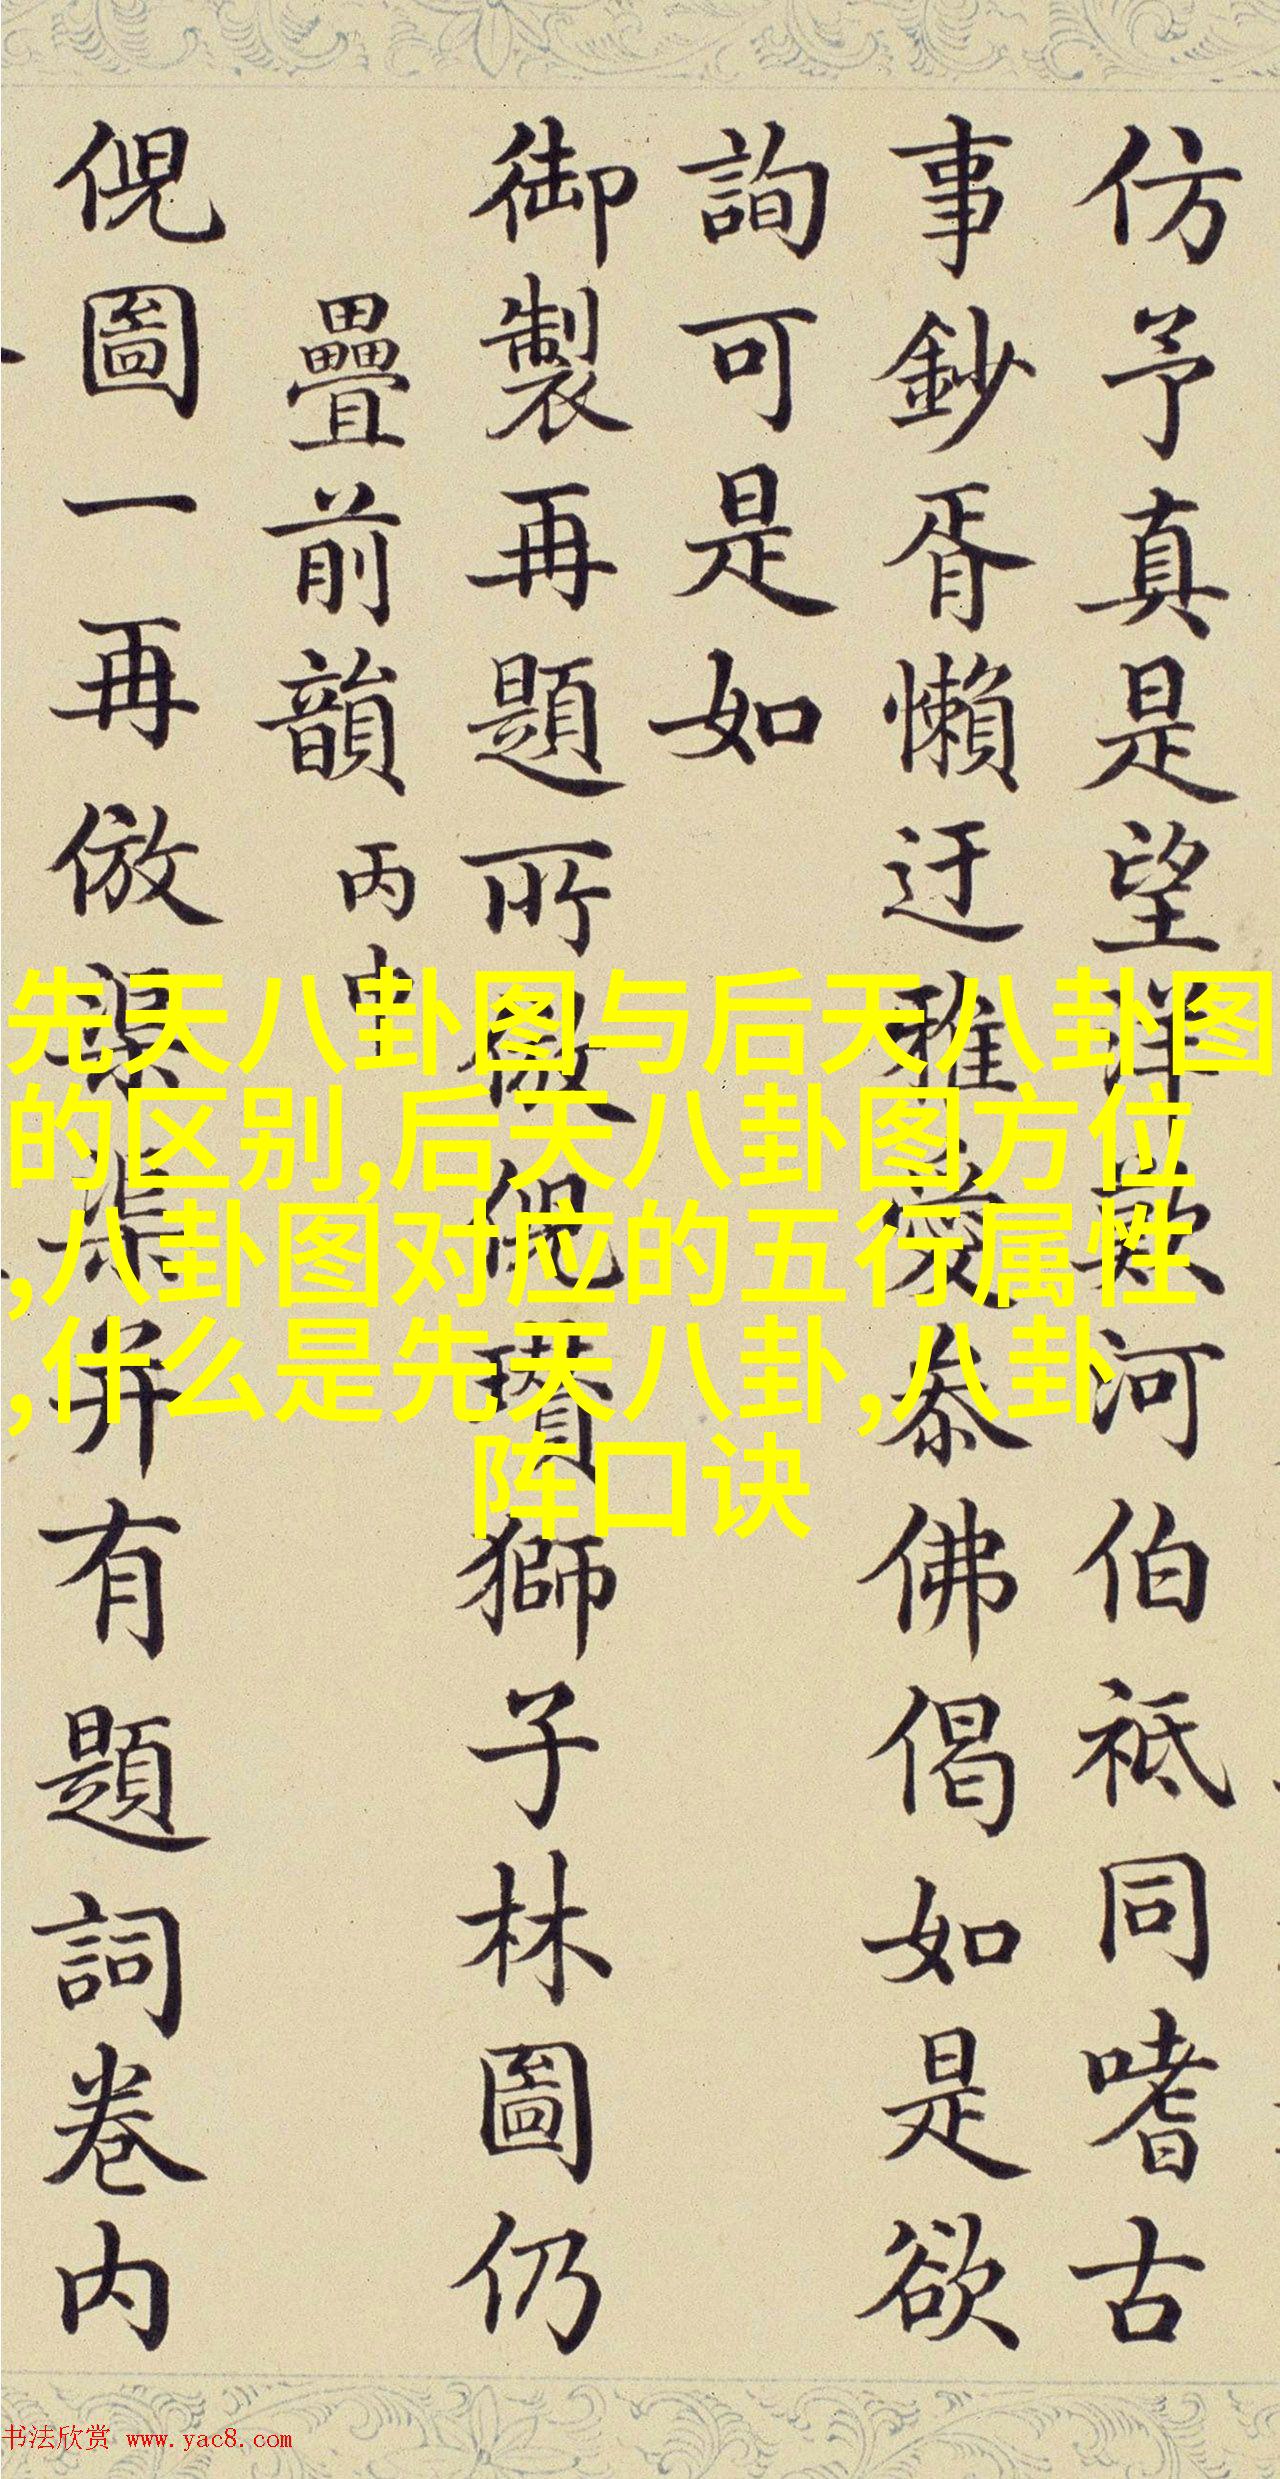 仿予真是望洋歎河伯祗同嗜古
事鈔胥懶迂雅愛恭佛偈如是欲
詢可是如
御製再題所倣倪瓚獅子林圖仍
疊前韻丙申
倪圖一再倣渠柒并有題詞卷内
先天八卦图与后天八卦图
的区别,后天八卦图方位
,八卦图对应的五行属性
,什么是先天八卦,八卦
阵口诀
书法欣赏 www.yac8.com